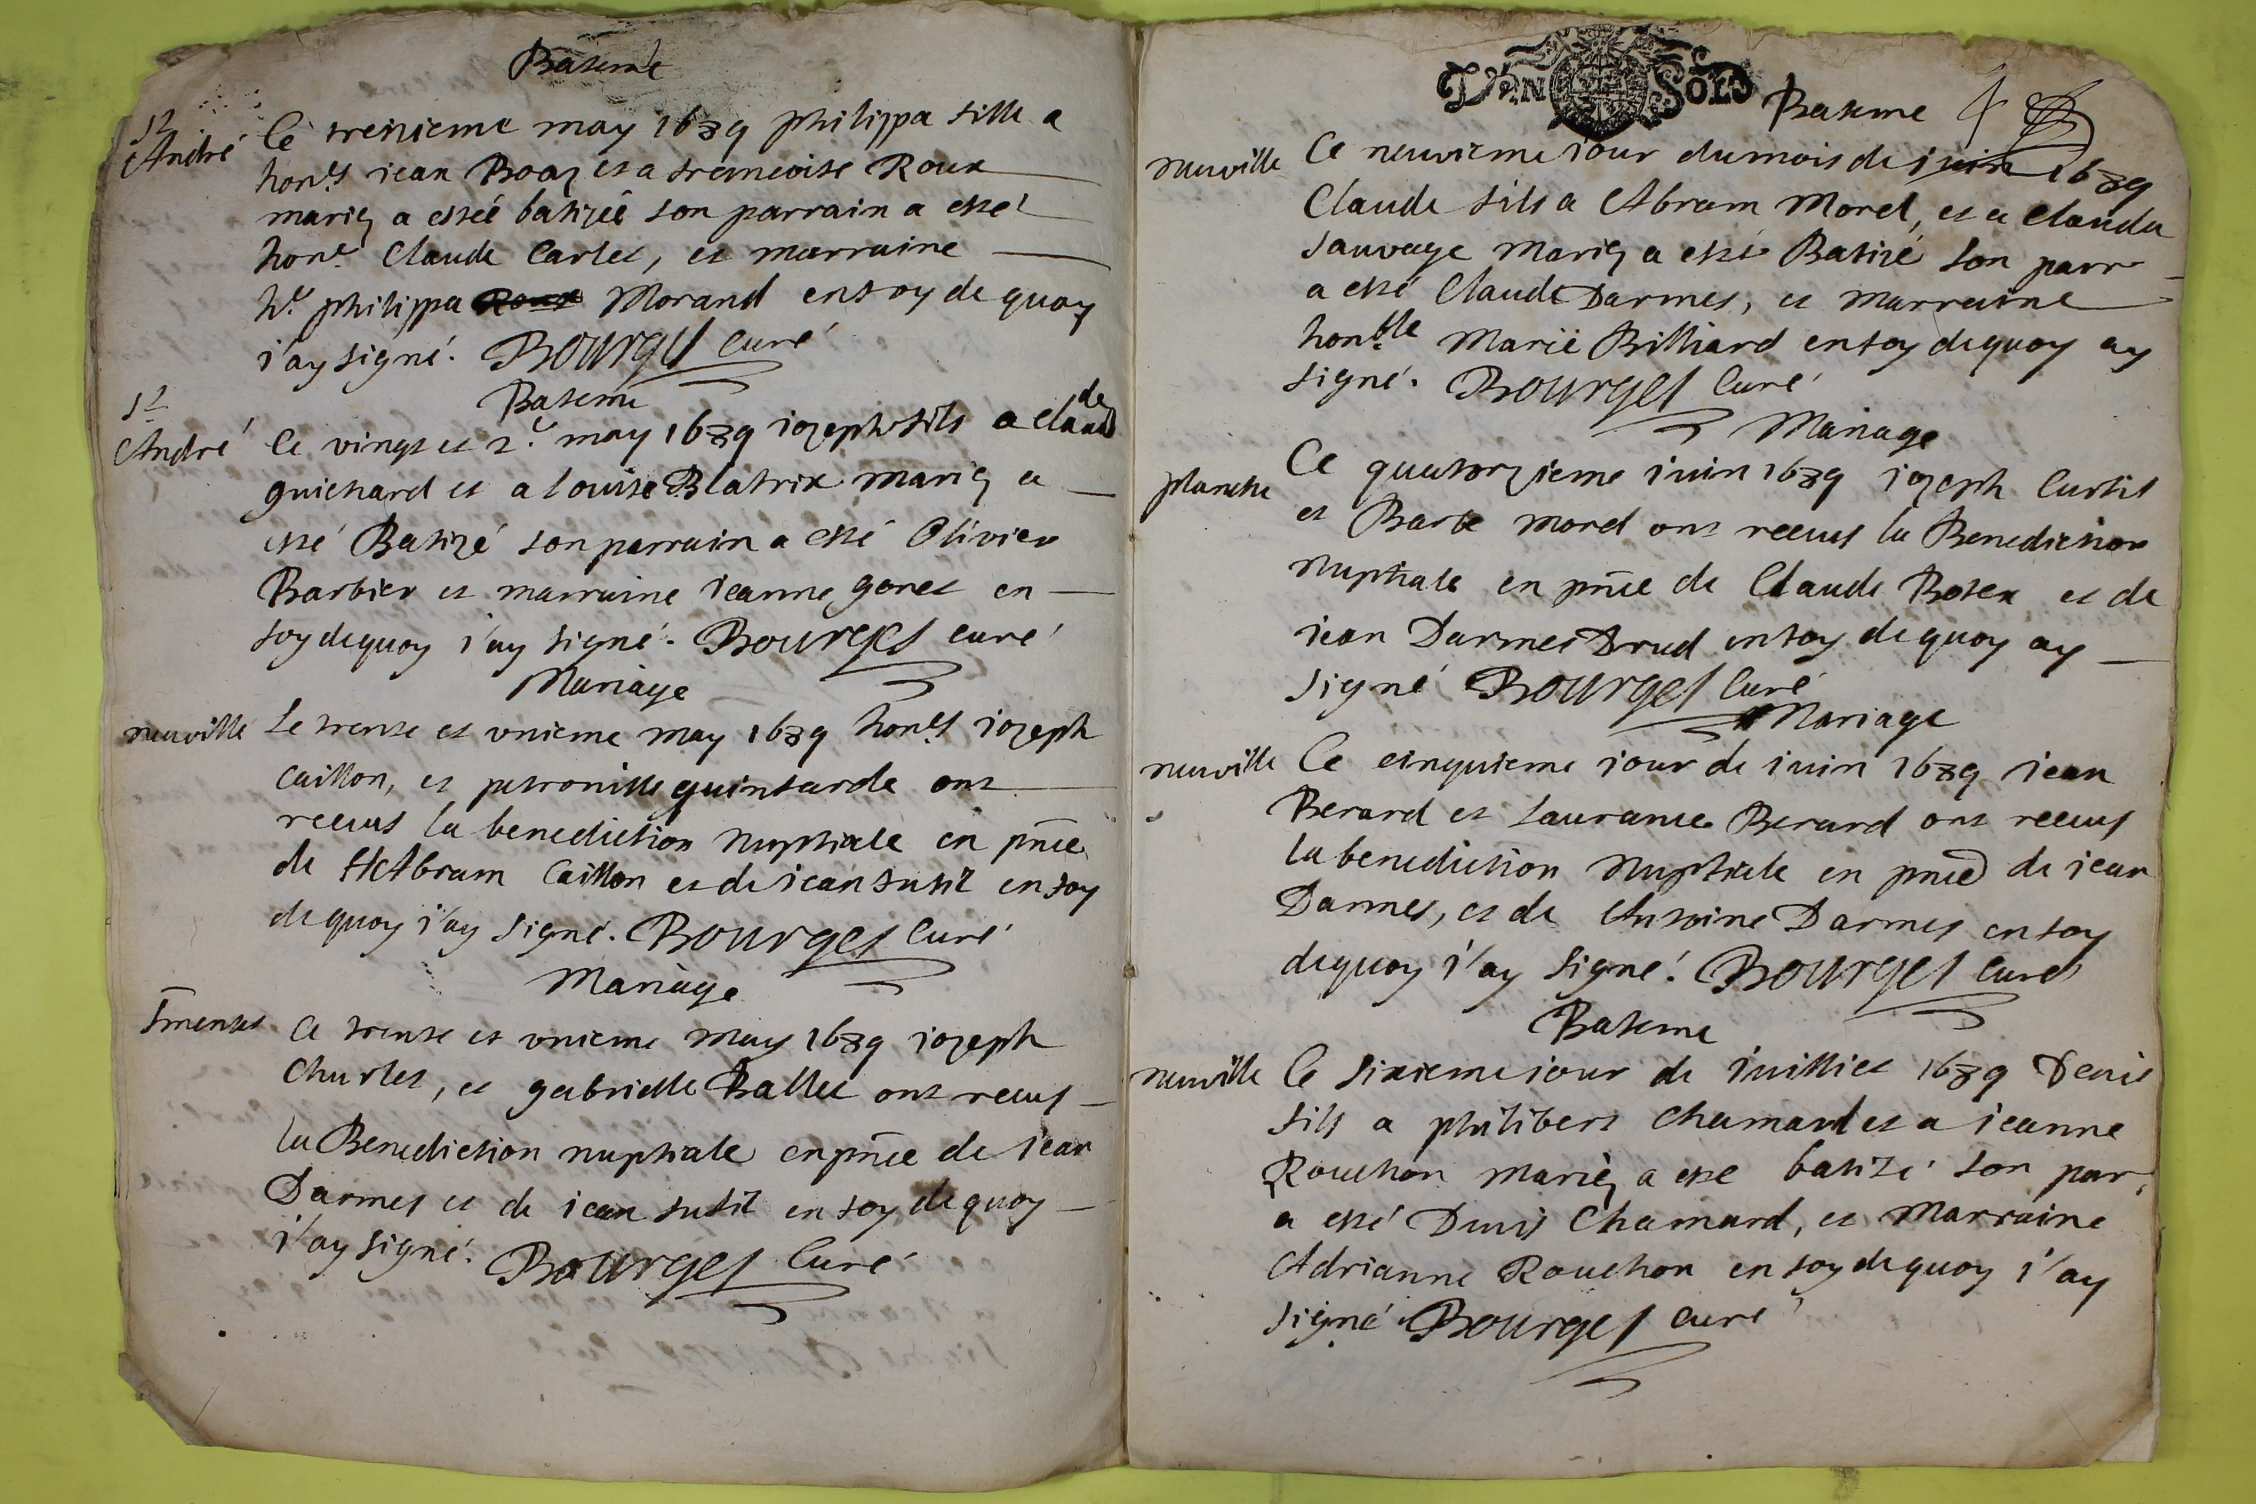 Bateme
St
André
Ce treizieme may 1689 philippa fille a
hon.ts jean Boaz et a francoise Roux
mariez a estéé batizéé son parrain a esté
hon.e Claude Carlet, et marraine
h.e philippa Morand en foy de quoy
i'ay signé. Bourges Curé
Bateme
St
André
Ce vingt et 2.e may 1689 iozeph fils a claude
guichard et a louise Blatrix mariez a
esté Batizé son parrain a esté Olivier
Barbier et marraine ieanne genet en
foy de quoy i'ay signé. Bourges curé
Mariage
neuville
Le trente et unieme may 1689 hon.ts iozeph
caillon, et petronille quintarde ont
receus la benediction nuptiale en pnce
de Abram Caillon et de iean sutil en foy
de quoy i'ay signé. Bourges Curé
Mariage
Ce trente et unieme may 1689 iozeph
Charlet, et gabrielle Ballet ont receus
la Benediction nuptiale en pnce de iean
Darmes et de iean sutil en foy de quoy
i'ay signé. Bourges Curé
D'VN SOLS
Bateme
neuville
Ce neuvieme iour du mois de iuin 1689
Claude fils a Abram Morel, et a Clauda
sauvage mariez a esté Batizé son parr
a esté Claude Darmes, et Marraine
hon.ble Marie Billiard en foy de quoy ay
signé. Bourges Curé
Mariage
planche
Ce quatorzieme iuin 1689 iozeph Curtil
et Barbe morel ont receus la Benediction
nuptiale en pnce de Claude Botex et de
iean Darmes Drud en foy de quoy ay
signé Bourges Curé
Mariage
neuville
Ce cinquieme iour de iuin 1689 iean
Berard et laurance Berard ont receus
la benediction nuptiale en pnce de iean
Darmes, et de Antoine Darmes en foy
de quoy i'ay signé. Bourges Curé
Bateme
neuville
Ce sixieme iour de iuilliet 1689 Denis
fils a philibert chamard et a ieanne
Rouchon mariéz a esté batizé son par,
a esté Denis Chamard, et Marraine
Adrianne Rouchon en foy de quoy i'ay
signé Bourges curé